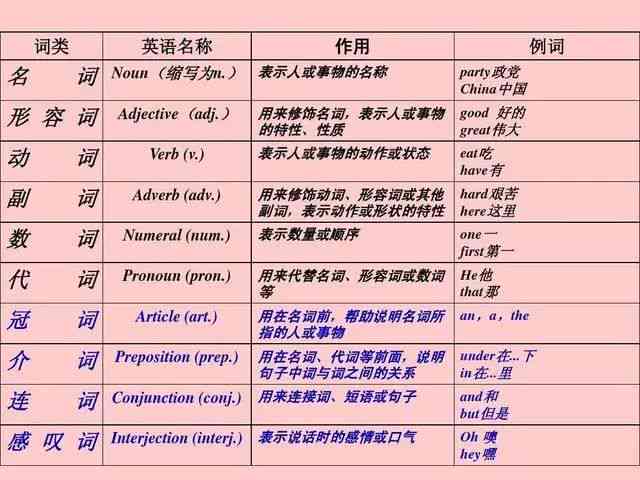 词类 英语名称 作用 例词
名词 Noun（缩写为n.） 表示人或事物的名称 party政党
China中国
形容词 Adjective（adj.） 用来修饰名词，表示人或事物
的特性、性质 good 好的
great伟大
动词 Verb (v.) 表示人或事物的动作或状态 eat吃
have有
副词 Adverb (adv.) 用来修饰动词、形容词或其他
副词，表示动作或形状的特性 hard艰苦
here这里
数词 Numeral (num.) 表示数量或顺序 one一
first第一
代词 Pronoun (pron.) 用来代替名词、形容词或数词
等 He他
that那
冠词 Article (art.) 用在名词前，帮助说明名词所
指的人或事物 an，a，the
介词 Preposition (prep.) 用在名词、代词等前面，说明
句子中词与词之间的关系 under在...下
in在...里
连词 Conjunction (conj.) 用来连接词、短语或句子 and和
but但是
感叹词 Interjection (interj.) 表示说话时的感情或口气 Oh 噢
hey嘿